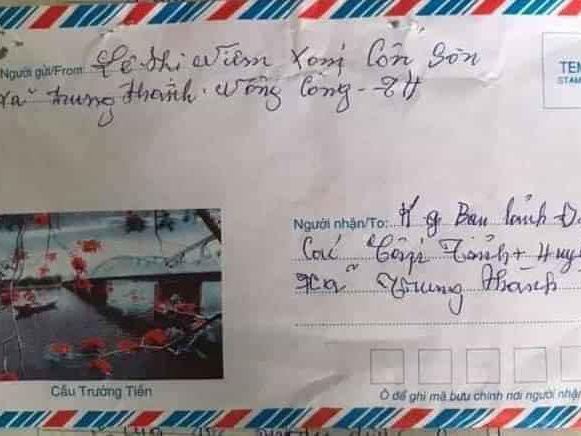 Người gửi/From: Lê Thị Viêm Xóm Côn Sơn
xã Trung Thành. Nông Cống - TH
TEM
STAM
Người nhận/To: Ban lãnh Đạ
Các Tỉnh + Huyệ
xã Trung Thành
Cầu Trường Tiền
Ô để ghi mã bưu chính nơi người nhận